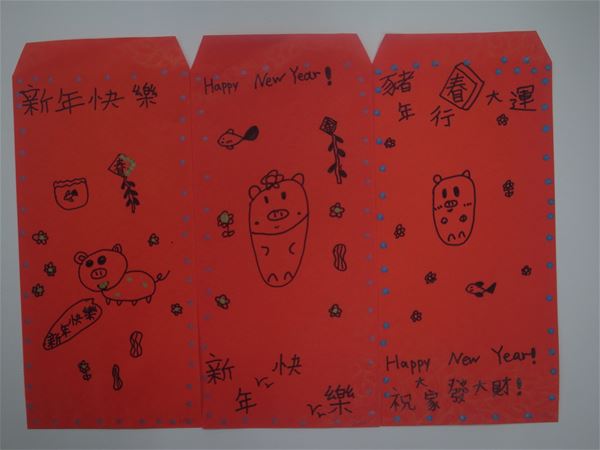 新年快樂
春
新年快樂
Happy New Year!
春
新年快樂
豬年行大運
春
Happy New Year!
祝大家發大財!